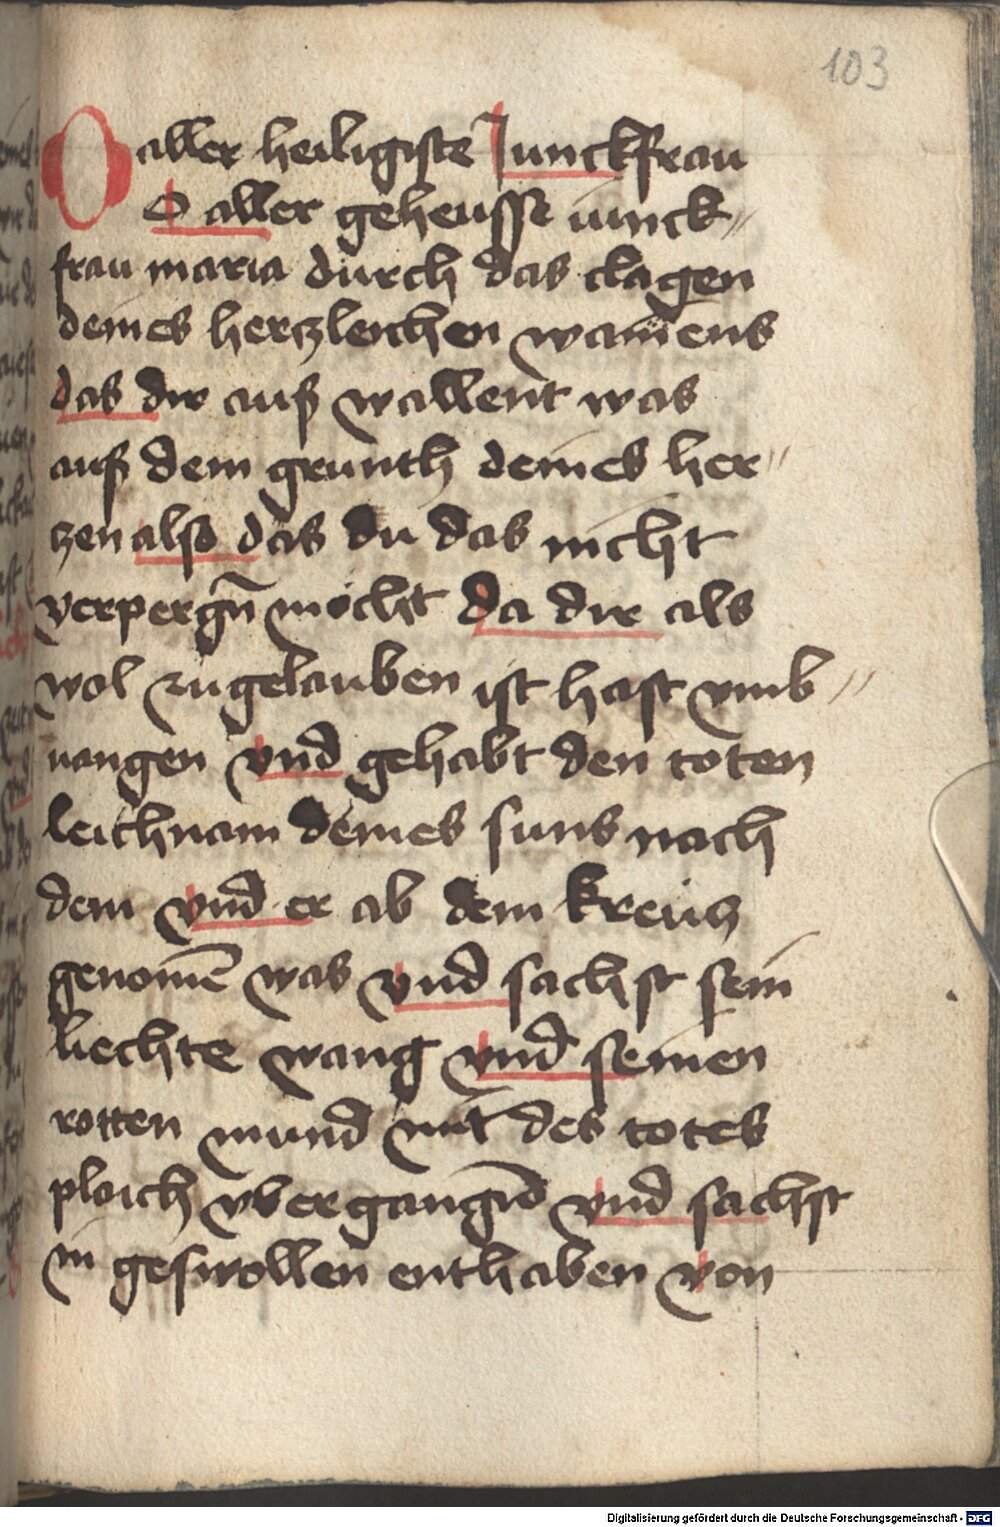 103
O aller heiligiste Junckfrau
O aller geheusse iunck-
frau maria durch das clagen
deines hertzleichen wainens
das dir auß wallent was
auß dem grunth deines her-
zen also das du das nicht
verpergn̄ möcht da dir als
wol zugelauben ist hast vmb-
uangen vnd gehabt den toten
leichnam deines suns nach
dem vnd er ab dem kreütz
genomē was vnd sachst sein
liechte wang vnd seinen
rotten mund mit des totes
plaich vbergangn̄ vnd sachst
in geswollen enthaben von
Digitalisierung gefördert durch die Deutsche Forschungsgemeinschaft - DFG